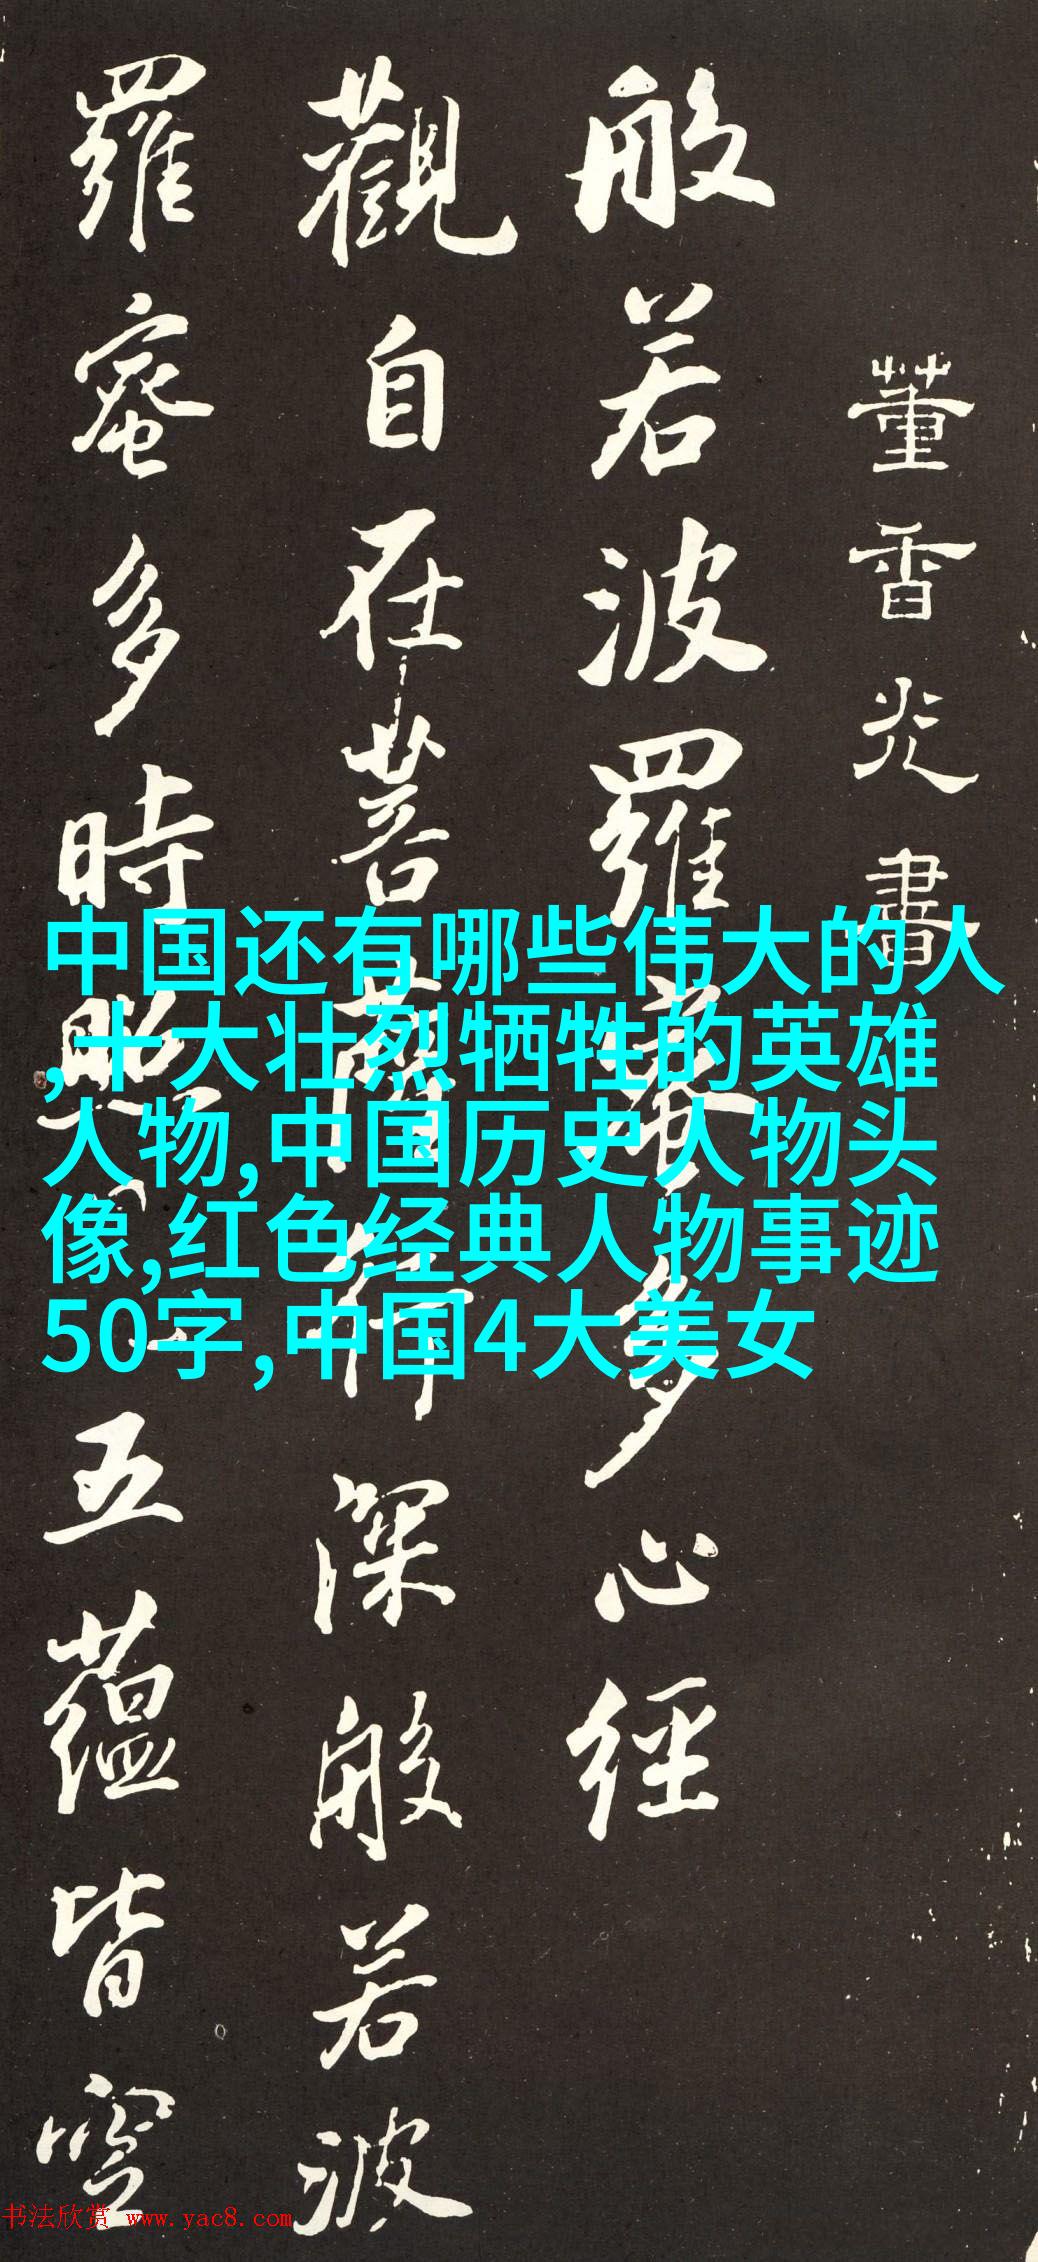 董香光書
般若波羅蜜多心經
觀自在菩薩行深般若波
羅蜜多時照見五蘊皆空
中国还有哪些伟大的人
,十大壮烈牺牲的英雄
人物,中国历史人物头
像,红色经典人物事迹
50字,中国4大美女
书法欣赏 www.yac8.com